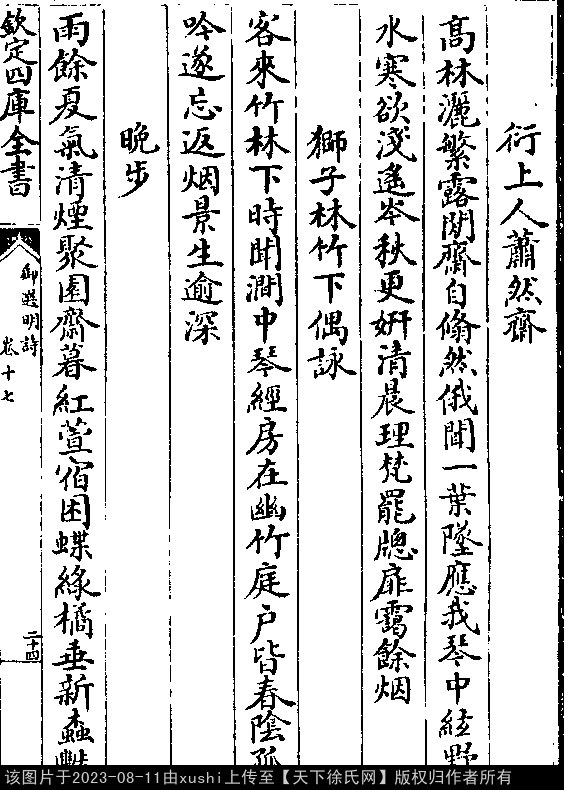 衍上人蕭然齋
高林灑繁露閒齋自翛然俄聞一葉墜應我琴中絃野
水寒欲淺遙岑秋更妍清晨理梵罷牕扉靄餘烟
獅子林竹下偶詠
客來竹林下時聞澗中琴經房在幽竹庭戶皆春陰孤
吟遂忘返烟景生逾深
晚步
雨餘夏氣清煙聚園齋暮紅萱宿困蝶綠橘垂新蠧
欽定四庫全書
御選明詩
卷十七
二十四
该图片于2023-08-11由xushi上传至【天下徐氏网】版权归作者所有